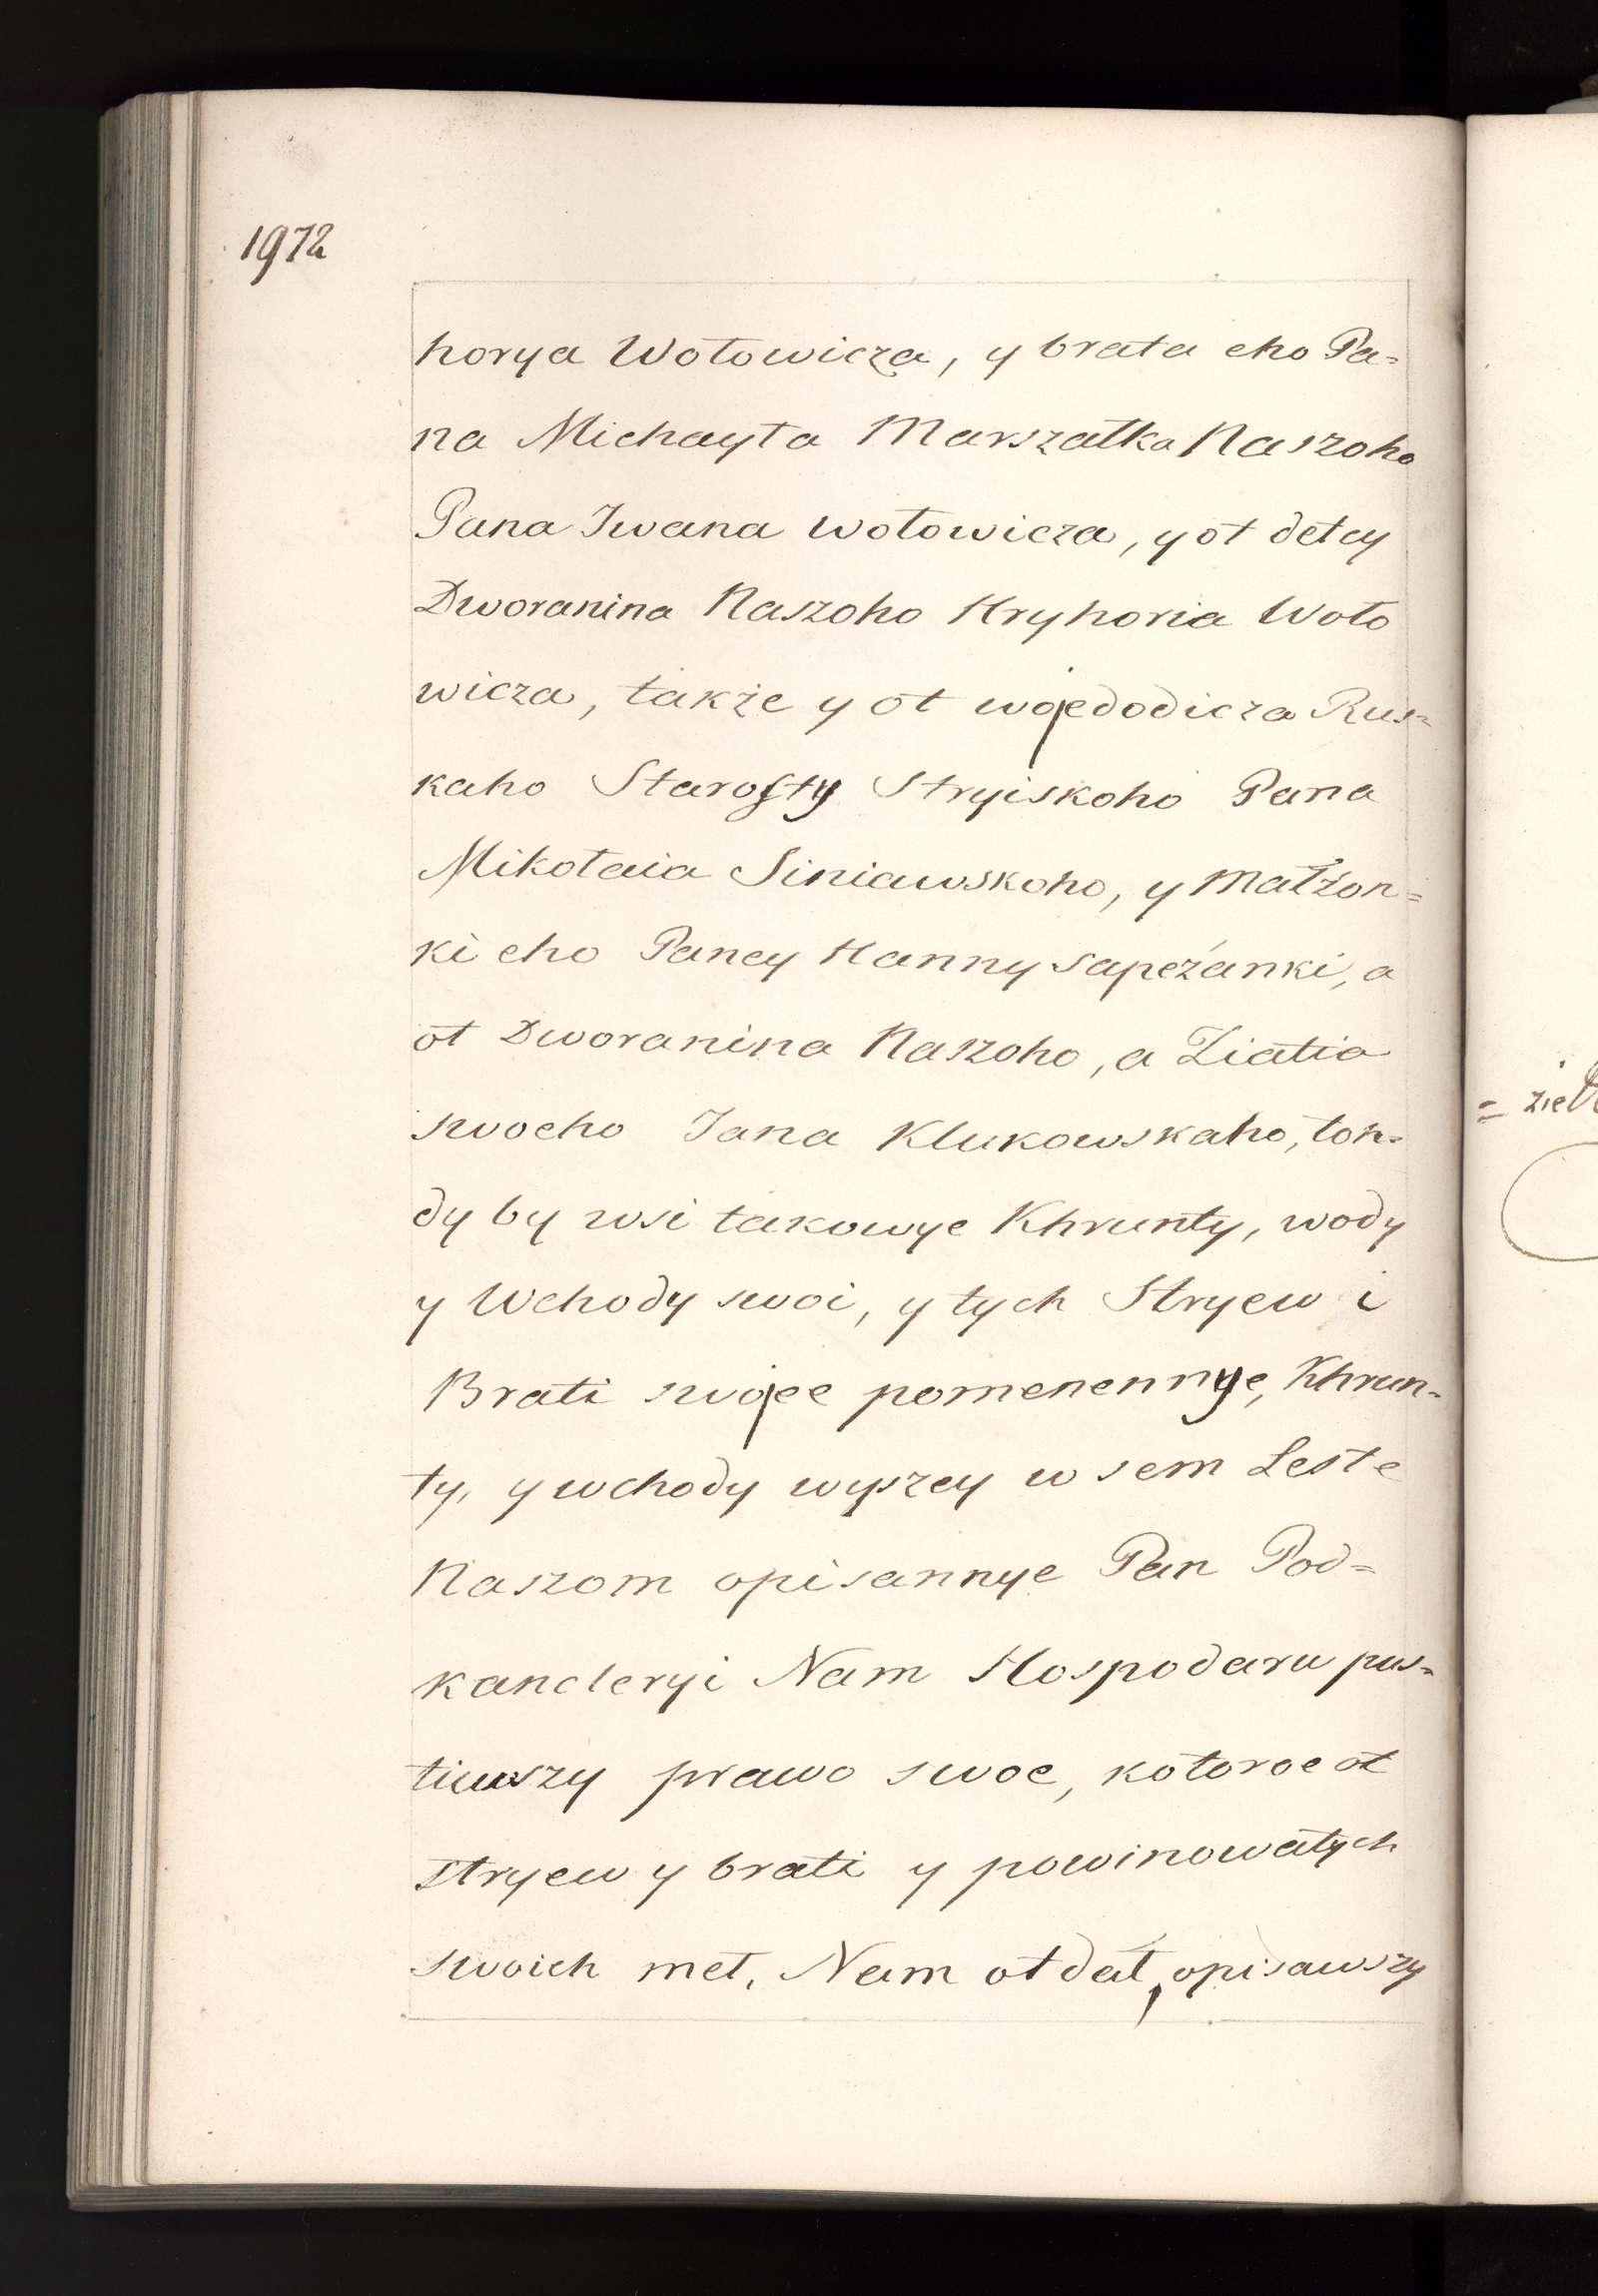 1972
horya Wołowicza, y brata eho Pa=
na Michayła Marszałka Naszoho
Pana Iwana Wołowicza, y ot detcy
Dworanina Naszoho Hryhoria Woło
wicza, także y ot wojedodicza Rus=
kaho Starosty Stryiskoho Pana
Mikołaia Siniawskoho, y Małżon=
ki eho Paney Hanny Sapeżanki, a
ot Dworanina Naszoho, a Ziatia
swoeho Jana Klukowskaho, toh=
dy by wsi takowye Khrunty, wody
y Wchody swoi, y tych Stryew i
Brati swojee pomenennye, Khrun=
ty, y wchody wyszey w sem Leste
Naszom opisannye Pan Pod=
kancleryi Nam Hospodaru pus=
tiwszy prawo swoe, kotoroe ot
Stryew y brati y powinowatych
swoich meł, Nam otdał, opisawszy
= zieł